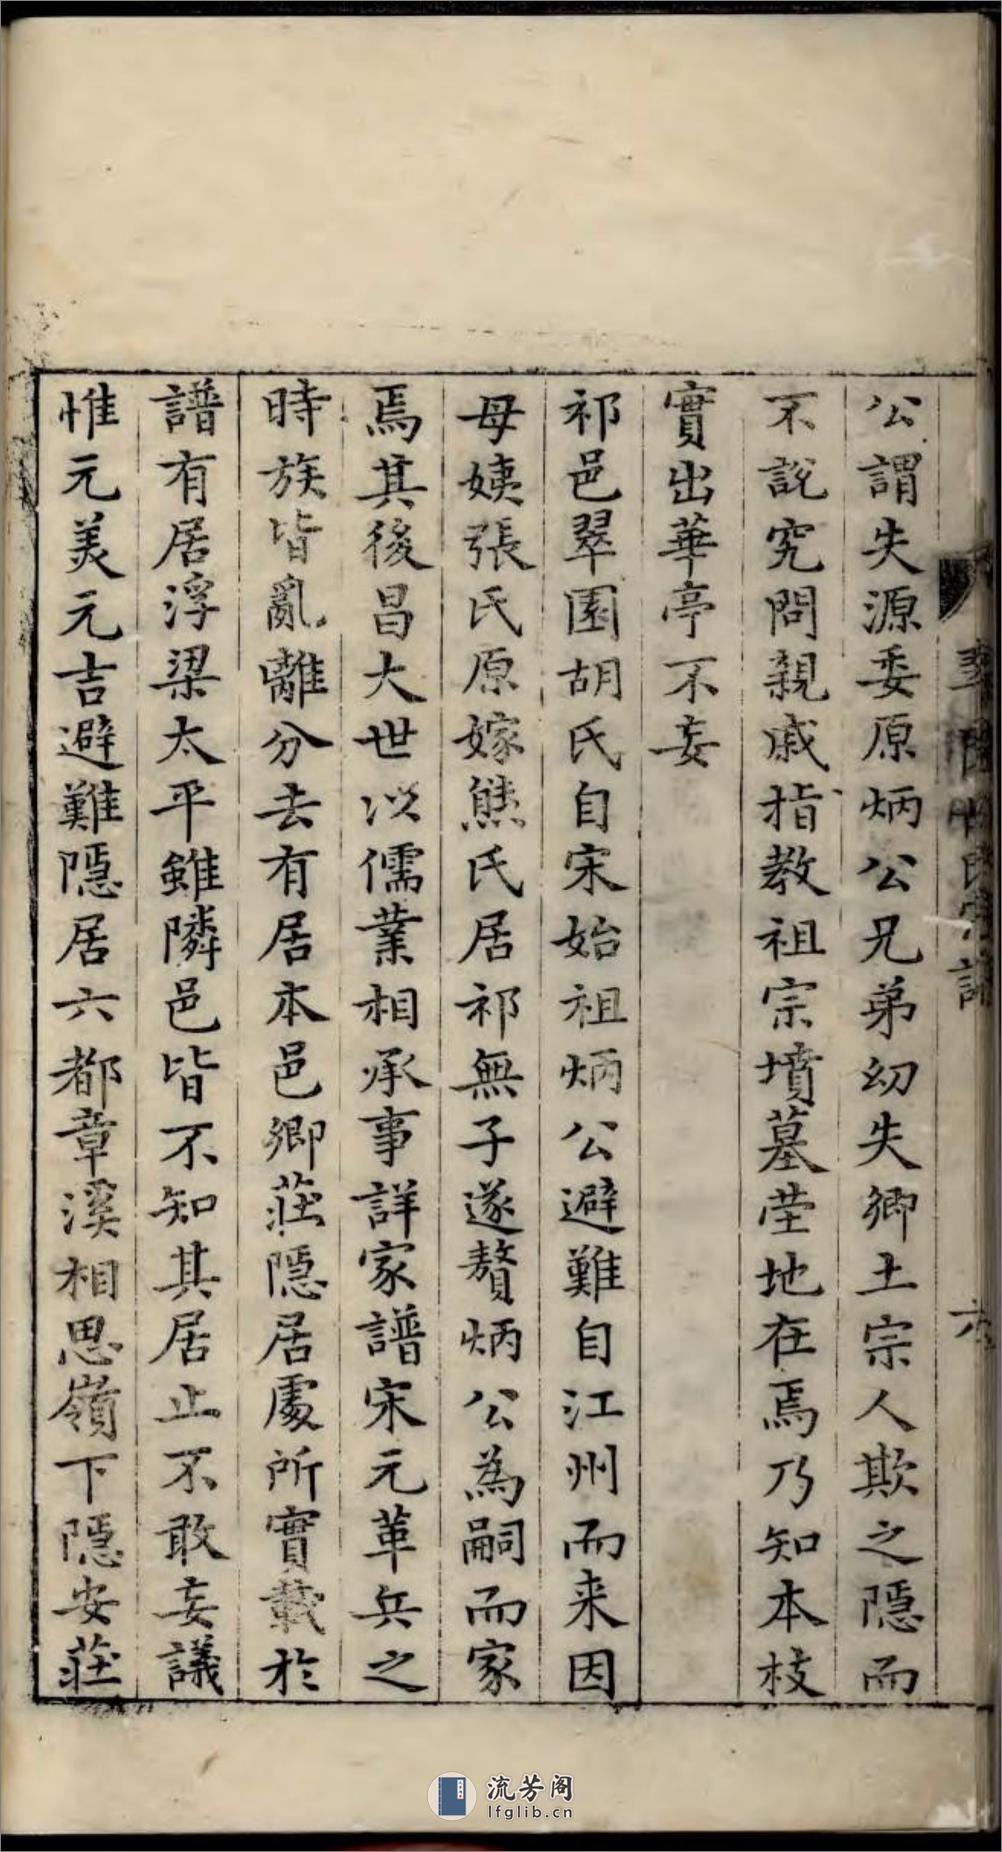 公謂失源委原炳公兄弟幼失鄉土宗人欺之隱而
不說究問親戚指教祖宗墳墓塋地在焉乃知本枝
實出華亭不妄
祁邑翠園胡氏自宋始祖炳公避難自江州而来因
母姨張氏原嫁熊氏居祁無子遂贅炳公為嗣而家
焉其後昌大世以儒業相承事詳家譜宋元革兵之
時族皆亂離分去有居本邑鄉莊隱居處所實載於
譜有居浮梁太平雖隣邑皆不知其居止不敢妄議
惟元美元吉避難隱居六都章溪相思嶺下隱安莊
六
流芳阁
lfglib.cn